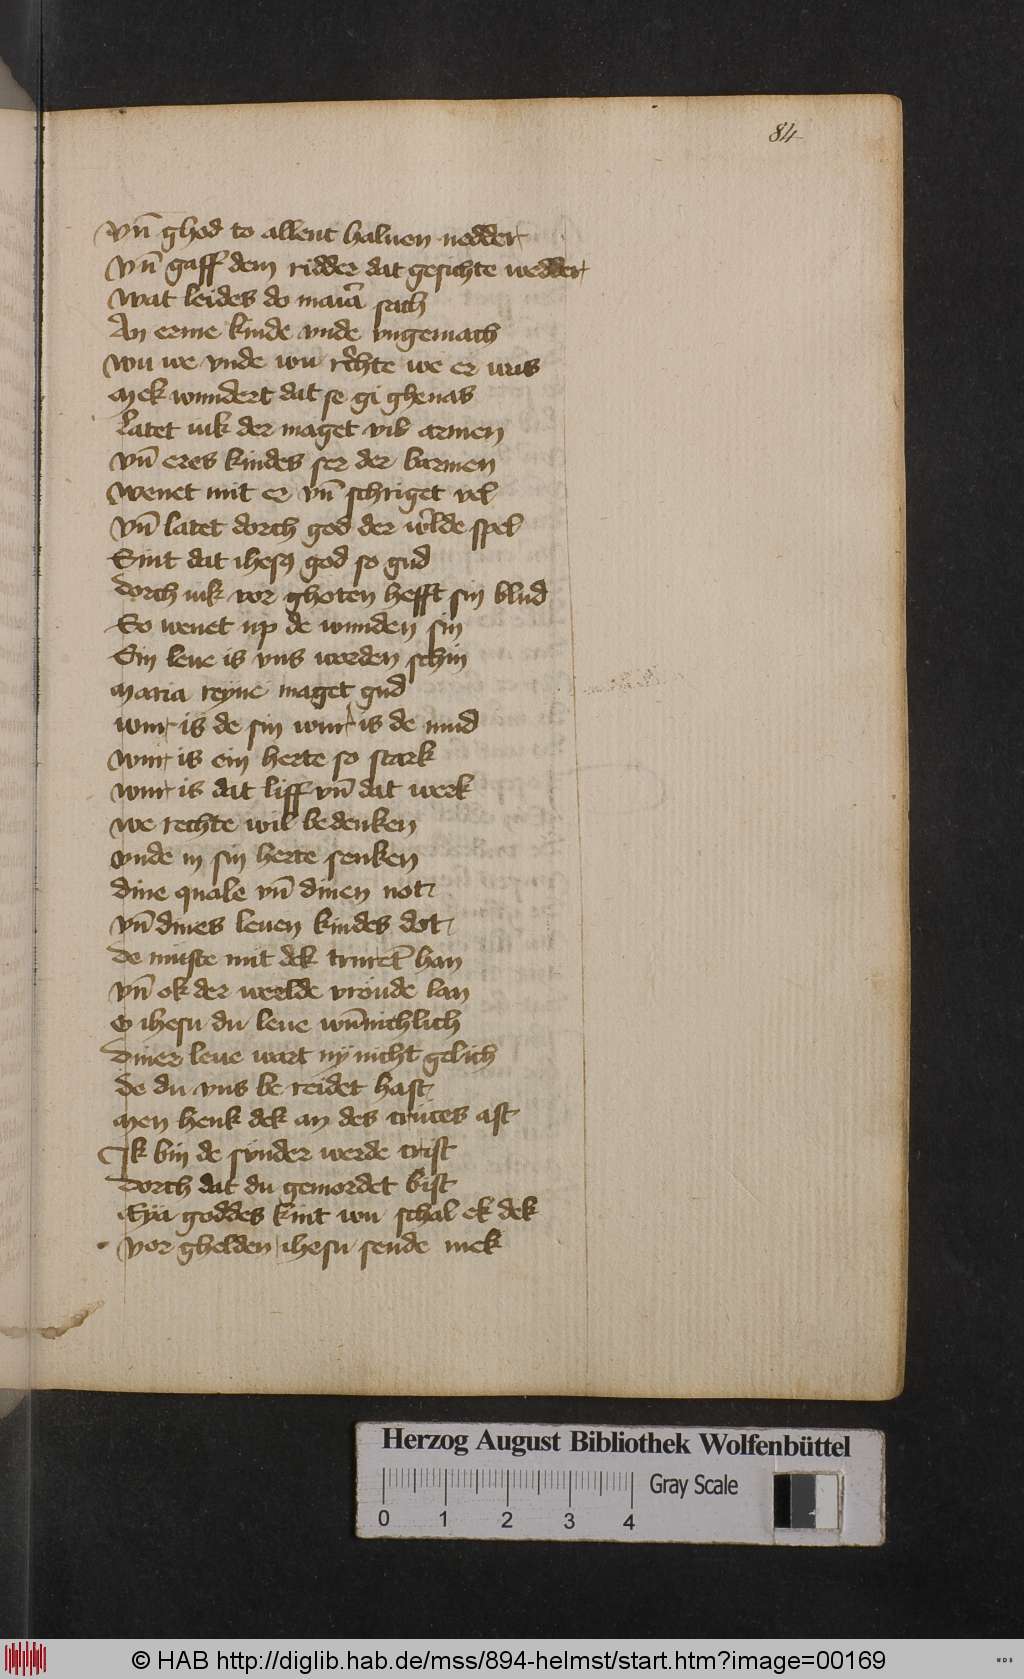 84
vn̄ ghod to allent haluen nedder
vn̄ gaff dem ridder dat gesichte wedder
wat leides do maria sach
An erme kinde vnde vngemach
wu we vnde wu rechte we er was
mek wundert dat se gi ghenas
latet iuk der maget vil armen
vn̄ eres kindes ser der barmen
wenet mit er vn̄ schriget vel
vn̄ latet dorch god der werlde spel
Sint dat ihesus god so gud
dorch iuk vor ghoten hefft sin blud
So wenet up de wunden sin
Sin leue is vns worden schin
maria reyne maget gud
wur is de sin wur is de mud
wur is ein herte so stark
wur is dat liff vn̄ dat werk
we rechte wil bedenken
vnde in sin herte senken
dine quale vn̄ dinen not
vn̄ dines leuen kindes dot
de muste mit dek truren̄ han
vn̄ ok der werlde vroude lan
O ihesu du leue wūnichlich
diner leue wart ny nicht gelich
de du vns be reidet hast
men henk dek an des cruces ast
Ik bin de sunder werde crist
dorch dat du gemordet bist
Eya goddes kint wu schal ek dek
vor ghelden ihesu sende mek
Herzog August Bibliothek Wolfenbüttel
Gray Scale
0 1 2 3 4
© HAB http://diglib.hab.de/mss/894-helmst/start.htm?image=00169